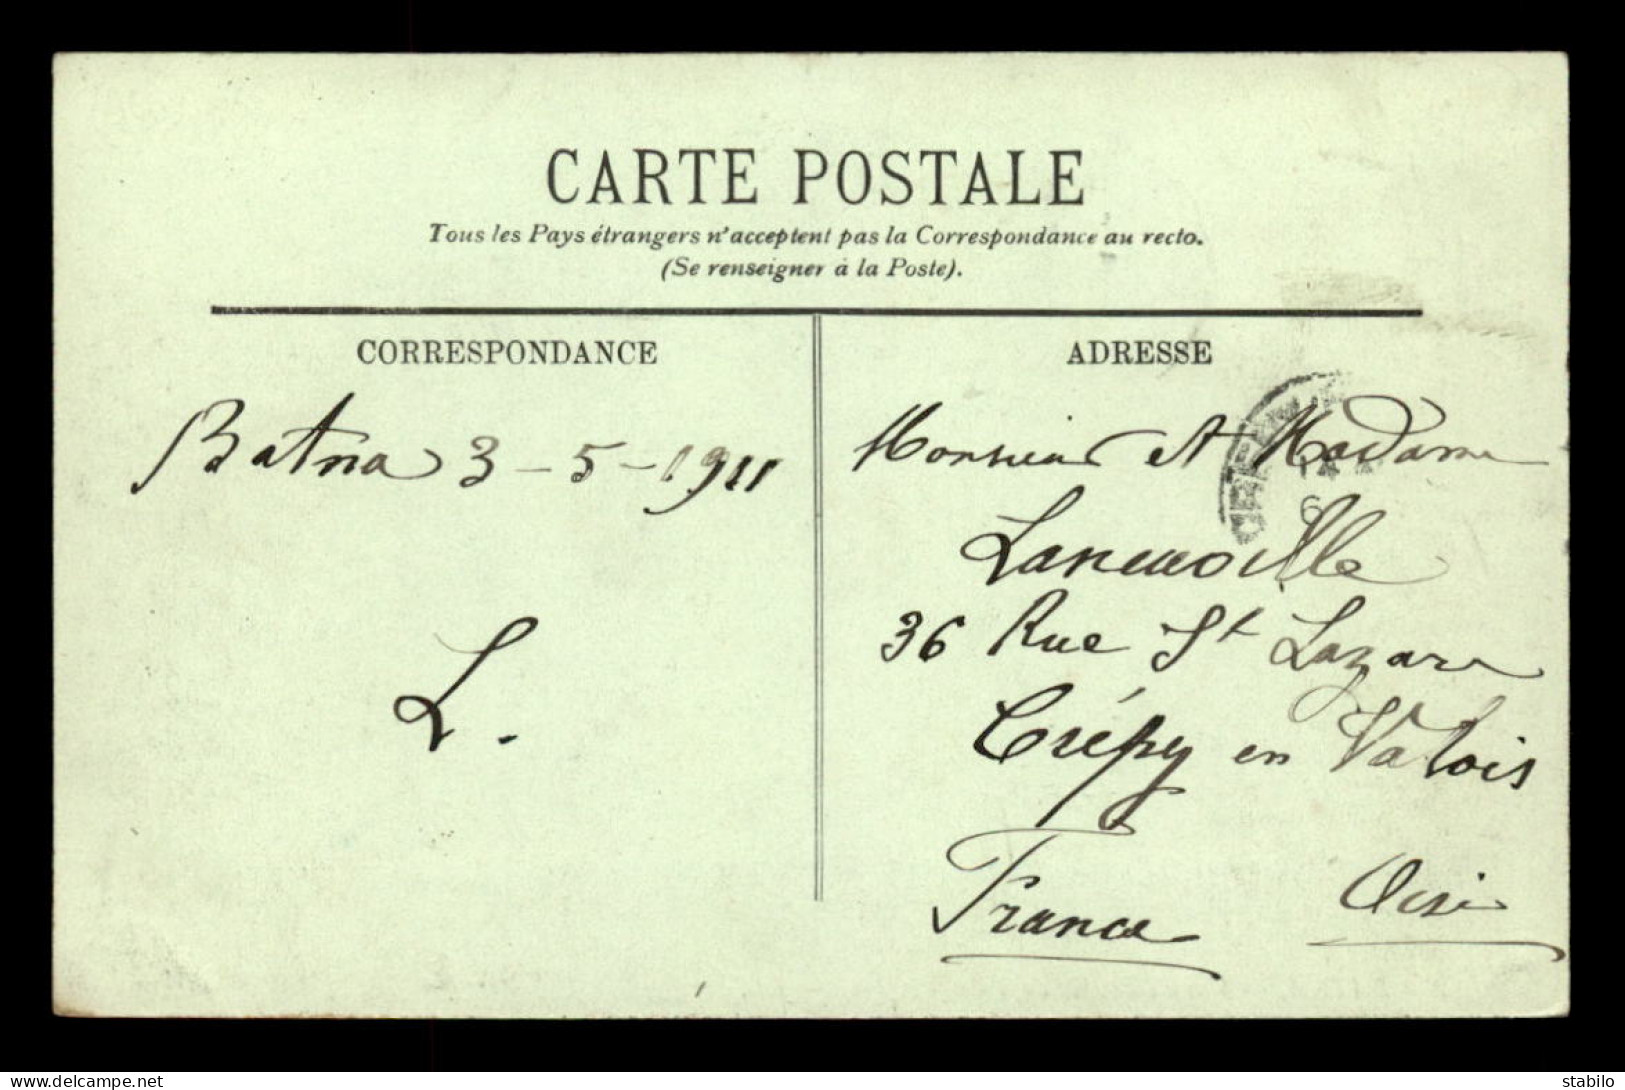 CARTE POSTALE
Tous les Pays étrangers n'acceptent pas la Correspondance au recto.
(Se renseigner à la Poste).
CORRESPONDANCE
Batna 3-5-1911
L.
ADRESSE
Monsieur et Madame
36 Rue St Lazare
Crépy en Valois
France Oise
www.delcampe.net
stabilo